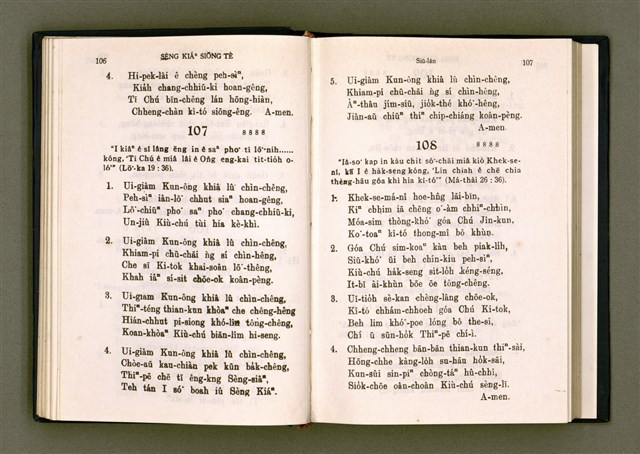 106
SÈNG KIÁⁿ SIŌNG TÈ
4. Hi-pek-lâi ê chèng peh-sìⁿ,
Kiâh chang-chhiū-ki hoan-gêng,
Tī Chú bīn-chêng lán hōng-hiàn,
Chheng-chàn kì-tó siōng-êng. A-men.
107
8 8 8 8
"I kiâⁿ ê sî lâng ēng in ê saⁿ pho͘ tī lō͘-nih......
kóng, 'Tī Chú ê miâ lâi ê Ông eng-kai tit-tio̍h o-
ló'" (Lō͘-ka 19 : 36).
1. Ui-giâm Kun-ông khiâ lû chìn-chêng,
Peh-sìⁿ iân-lō͘ chhut siâⁿ hoan-gêng,
Lō͘-chiūⁿ pho͘ saⁿ pho͘ chang-chhiū-ki,
Un-jiû Kiù-chú tùi hia kè-khì.
2. Ui-giâm Kun-ông khiâ lû chìn-chêng,
Khiam-pi chū-chāi ǹg sí chìn-hêng,
Che sī Ki-tok khai-soân lō͘-thêng,
Khah iâⁿ sí-sit chōe-ok koân-pèng.
3. Ui-giam Kun-ông khiâ lû chìn-chêng,
Thiⁿ-téng thian-kun khòaⁿ che chêng-hêng
Hián-chhut pi-siong khó-lîm tông-chêng,
Koan-khòaⁿ Kiù-chú biān-lîm hi-seng.
4. Ui-giâm Kun-ông khiâ lû chìn-chêng,
Chòe-āu kau-chiàn pek kūn ba̍k-chêng,
Thiⁿ-pē chē tī êng-kng Sèng-siâⁿ,
Teh tán I só͘ boah iû Sèng Kiáⁿ.
Siū-lân
107
5. Ui-giâm Kun-ông khiâ lû chìn-chêng,
Khiam-pi chū-chāi ǹg sí chìn-hêng,
Àⁿ-thâu jím-siū, jio̍k-thé khó͘-hêng,
Jiân-aū chiūⁿ thiⁿ chip-chiáng koân-pèng.
A-men.
108
8 8 8 8
"Iâ-so͘ kap in kàu chit só͘-chāi miâ kiò Khek-se-
nî, kā I ê ha̍k-seng kóng, 'Lín chiah ê chē chia
thèng-hāu góa khì hia kî-tó'" (Má-thài 26 : 36).
1. Khek-se-má-nî hoe-hn̂g lāi-bīn,
Kiⁿ chhim iā chēng o͘-àm chhiⁿ-chhìn,
Môa-sim thòng-khó͘ góa Chú Jîn-kun,
Ko͘-toaⁿ kî-tó thong-mî bô khùn.
2. Góa Chú sim-koaⁿ kàu beh piak-lih,
Siū-khó͘ ūi beh chín-kiu peh-sìⁿ,
Kiù-chú ha̍k-seng sit-lo̍h kéng-séng,
It-bī ài-khùn bōe ōe tông-chêng.
3. Ui-tio̍h sè-kan chèng-lâng chōe-ok,
Kî-tó chhám-chhoeh góa Chú Ki-tok,
Beh lim khó͘-poe lóng bô the-sî,
Chí ū sūn-ho̍k Thiⁿ-pē chí-ì.
4. Chheng-chheng bān-bān thian-kun thiⁿ-sài,
Hōng-chhe kàng-lo̍h su-hāu ho̍k-sāi,
Kun-sûi sin-piⁿ chòng-táⁿ hù-chhî,
Sio̍k-chōe oân-choân Kiù-chú sèng-lī.
A-men.